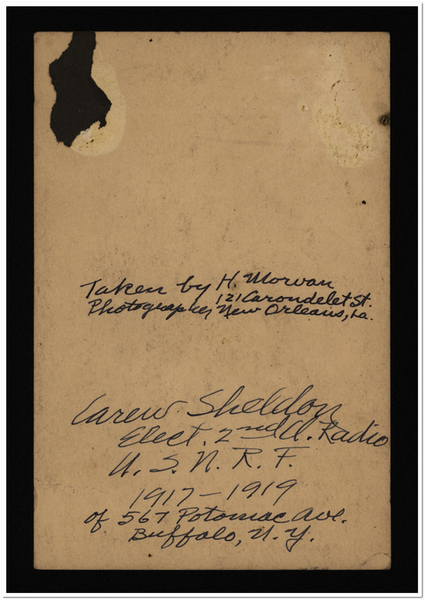 Taken by H. Morvan
Photographer, 121 Carondelet St.
New Orleans, La.
Carew Sheldon
Elect. 2nd A. Radio
U. S. N. R. F.
1917-1919
of 567 Potomac Ave.
Buffalo, N. Y.